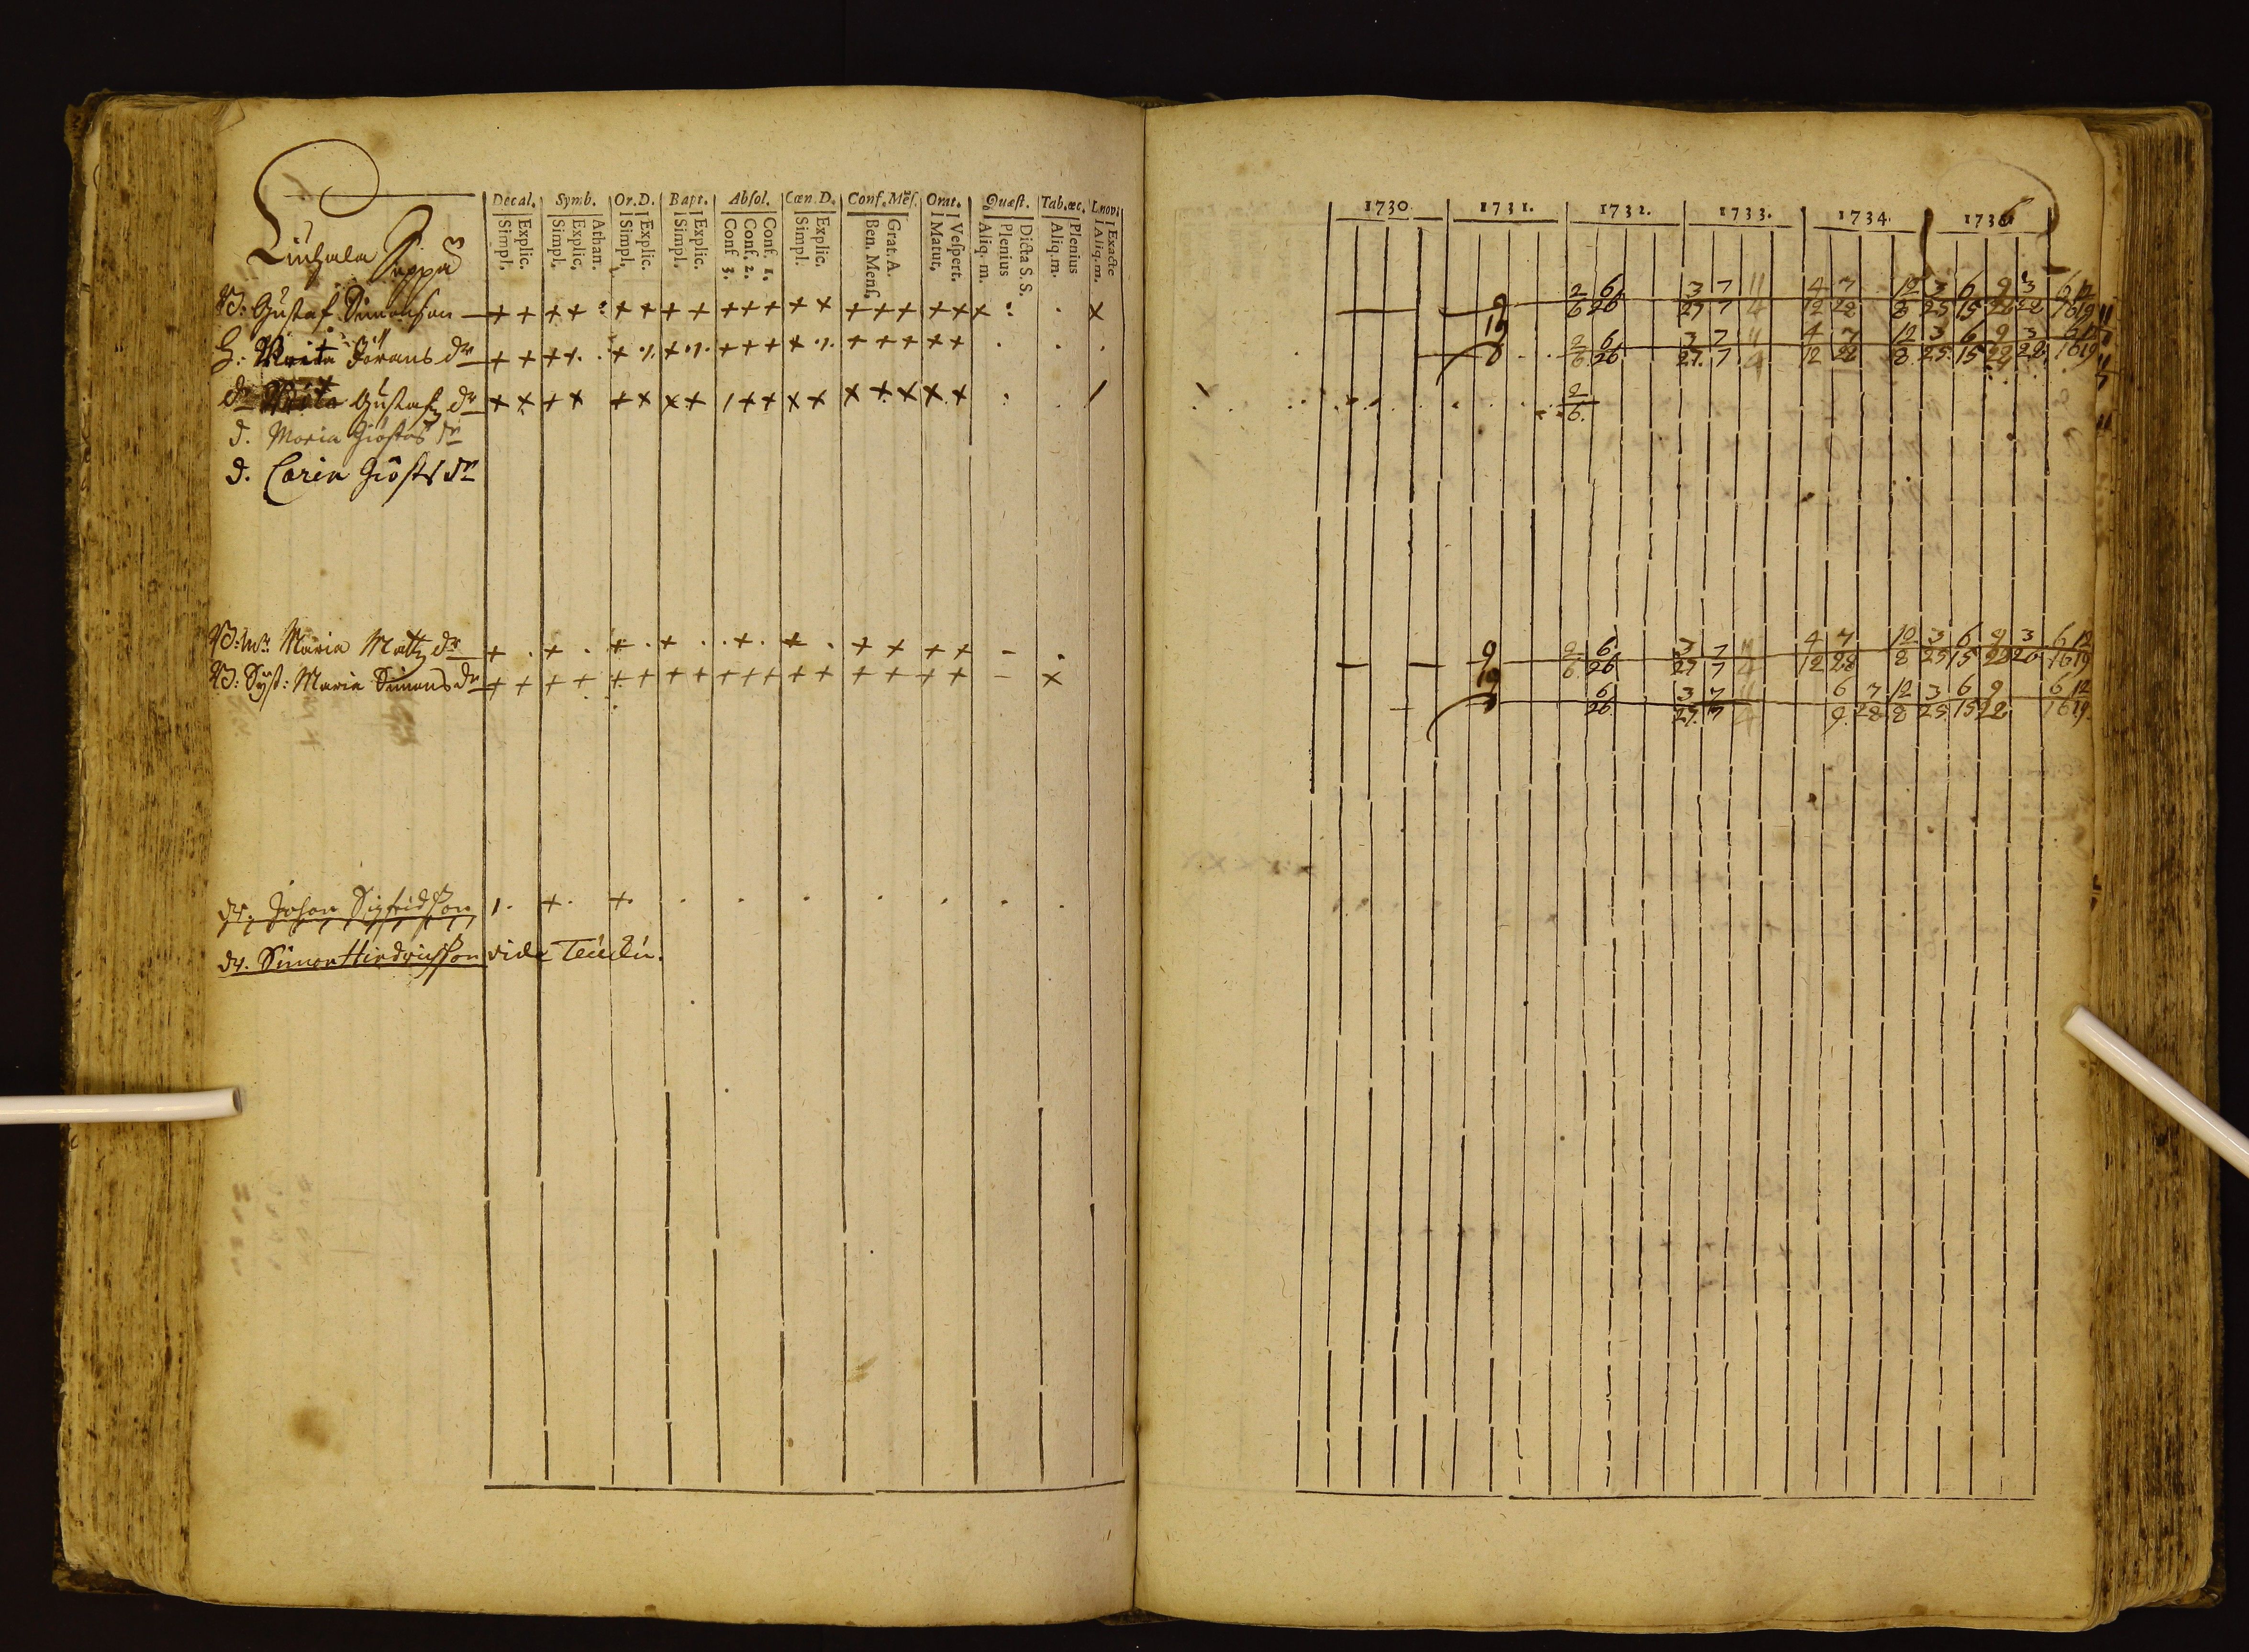 Decal. Symb. Or.D. Bapt. Absol. Cœn.D. Conf.Mẽſ. Orat. Quæst. Tab.œc. L.novi
Simpl. Explic. Simpl. Explic. Athan. Simpl. Explic. Simpl. Explic. Conf 3. Conf. 2. Conf. 1. Simpl. Explic. Ben. Menſ. Grat. A. Matut. Veſpert. Aliq. m. Plenius Dicta S. S. Aliq.m. Plenius Aliq.m. Exacte
Seppä
B: Gustaf Simonsson + + + + : + + + + + + + + + + + + + + x : . x
H: Brita Jörans dr + + + + . + ./. + ./. + + + + ./. + + + + + . . .
dr Gustafz dr + + + + + + x + / + + x x x + x x x : . /
d. Maria Giöstas dr
d. Carin Giösts dr
B: Mr Maria Mattz dr + . + . + . + . . + . + . + + + + - .
B: Syst: Maria Simons dr + + + + + + + + + + + + + + + + + - x
dr. Johan Sigfridsson 1. + . + . . . . . . . .
dr. Simon Hindricsson vide
1730. 1731. 1732. 1733. 1734. 1736
9 2 6 3 7 11 4 7 12 3 6 9 3 6 12
19 6 26 27 7 4 12 28 8 25 15 28 28 16 19
2 6 3 7 11 4 7 12 3 6 9 3 6 12
6 26 27. 7 4 12 28 8 25 15 28 28 16 19
2
6.
9 2 6 3 7 11 4 7 12 3 6 9 3 6 12
19 6 26 27 7 4 12 28 8 25 15 28 20 16 19
6 3 7 11 6 7 12 3 6 9 6 12
26. 27. 7 4 9. 28 8 25 15 28 16 19.